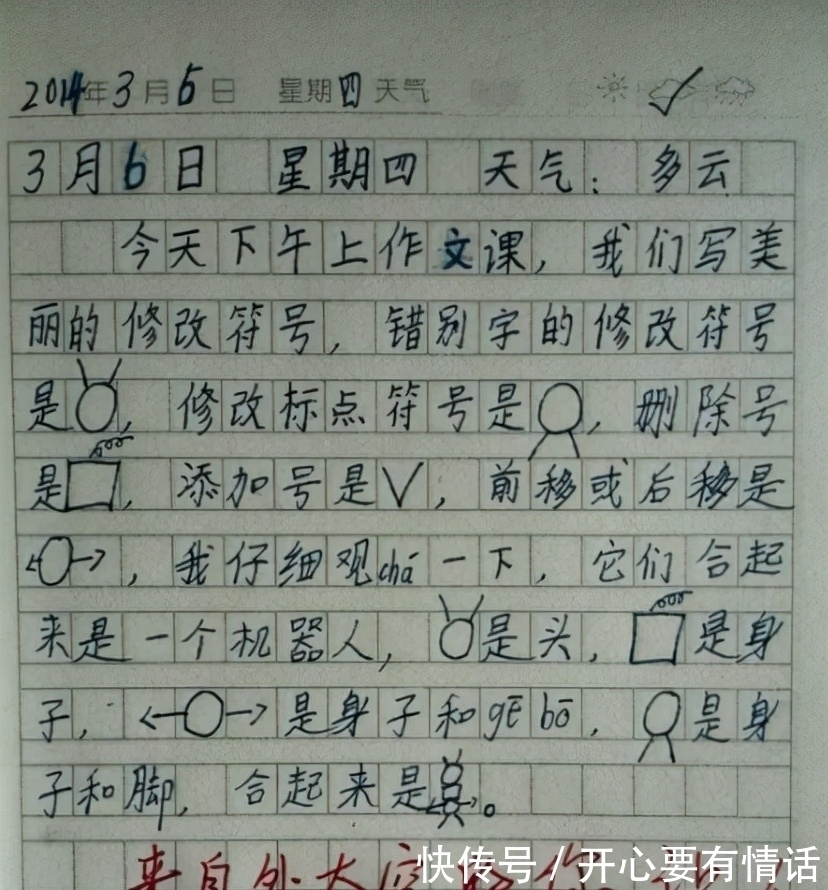 2014年3月6日 星期四 天气
3月6日 星期四 天气：多云
今天下午上作文课，我们写美
丽的修改符号，错别字的修改符号
是，修改标点符号是，删除号
是，添加号是V，前移或后移是
，我仔细观chá一下，它们合起
来是一个机器人，是头，是身
子，是身子和gē bō，是身
子和脚，合起来是。
来自外太空
快传号/开心要有情话